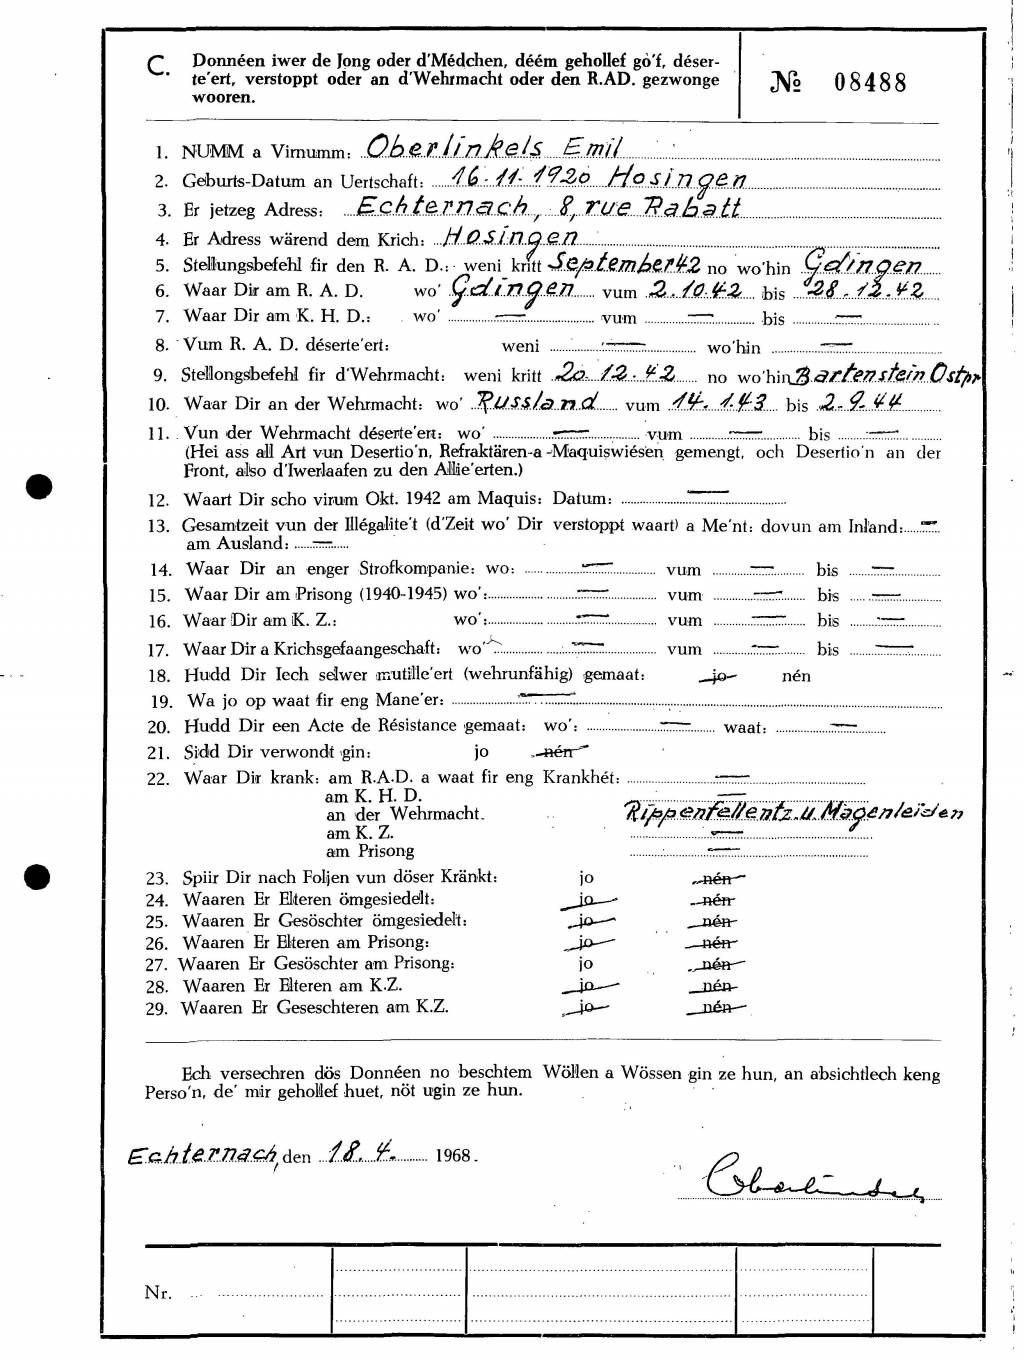 C. Donnéen iwer de Jong oder d'Médchen, déém gehollef gò'f, déser-
te'ert, verstoppt oder an d'Wehrmacht oder den R.AD. gezwonge
wooren.
№ 08488
1. NUMM a Virnumm: Oberlinkels Emil
2. Geburts-Datum an Uertschaft: 16.11.1920 Hosingen
3. Er jetzeg Adress: Echternach, 8, rue Rabatt
4. Er Adress wärend dem Krich: Hosingen
5. Stellungsbefehl fir den R. A. D.: weni kritt September 42 no wo'hin Gdingen
6. Waar Dir am R. A. D. wo' Gdingen vum 2.10.42 bis 28.12.42
7. Waar Dir am K. H. D.: wo' — vum — bis —
8. Vum R. A. D. déserte'ert: weni — wo'hin —
9. Stellongsbefehl fir d'Wehrmacht: weni kritt 20.12.42 no wo'hin Bartenstein Ostpr
10. Waar Dir an der Wehrmacht: wo' Russland vum 14.1.43 bis 2.9.44
11. Vun der Wehrmacht déserte'ert: wo' — vum — bis —
(Hei ass all Art vun Desertio'n, Refraktären-a-Maquiswiésen gemengt, och Desertio'n an der
Front, also d'Iwerlaafen zu den Allie'erten.)
12. Waart Dir scho virum Okt. 1942 am Maquis: Datum: —
13. Gesamtzeit vun der Illégalite't (d'Zeit wo' Dir verstoppt waart) a Me'nt: dovun am Inland: —
am Ausland: —
14. Waar Dir an enger Strofkompanie: wo: — vum — bis —
15. Waar Dir am Prisong (1940-1945) wo': — vum — bis —
16. Waar Dir am K. Z.: wo': — vum — bis —
17. Waar Dir a Krichsgefaangeschaft: wo' — vum — bis —
18. Hudd Dir Iech selwer mutille'ert (wehrunfähig) gemaat: jo nén
19. Wa jo op waat fir eng Mane'er: —
20. Hudd Dir een Acte de Résistance gemaat: wo': — waat: —
21. Sidd Dir verwondt gin: jo nén
22. Waar Dir krank: am R.A.D. a waat fir eng Krankhét: —
am K. H. D. —
an der Wehrmacht. Rippenfellentz. u. Magenleiden
am K. Z. —
am Prisong —
23. Spiir Dir nach Foljen vun döser Kränkt: jo nén
24. Waaren Er Elteren ömgesiedelt: jo nén
25. Waaren Er Gesöschter ömgesiedelt: jo nén
26. Waaren Er Elteren am Prisong: jo nén
27. Waaren Er Gesöschter am Prisong: jo nén
28. Waaren Er Elteren am K.Z. jo nén
29. Waaren Er Geseschteren am K.Z. jo nén
Ech versechren dös Donnéen no beschtem Wöllen a Wössen gin ze hun, an absichtlech keng
Perso'n, de' mir gehollef huet, nöt ugin ze hun.
Echternach, den 18.4. 1968.
Nr.